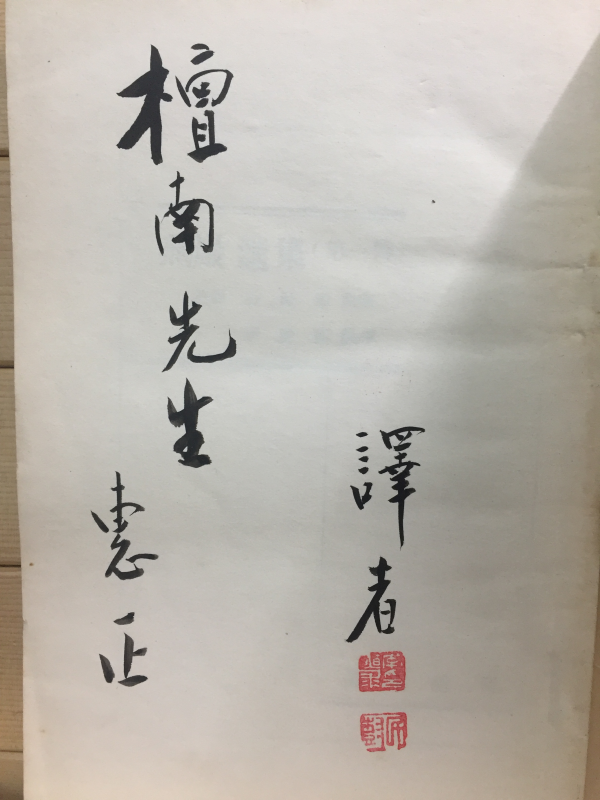 檀南先生
惠正
譯者